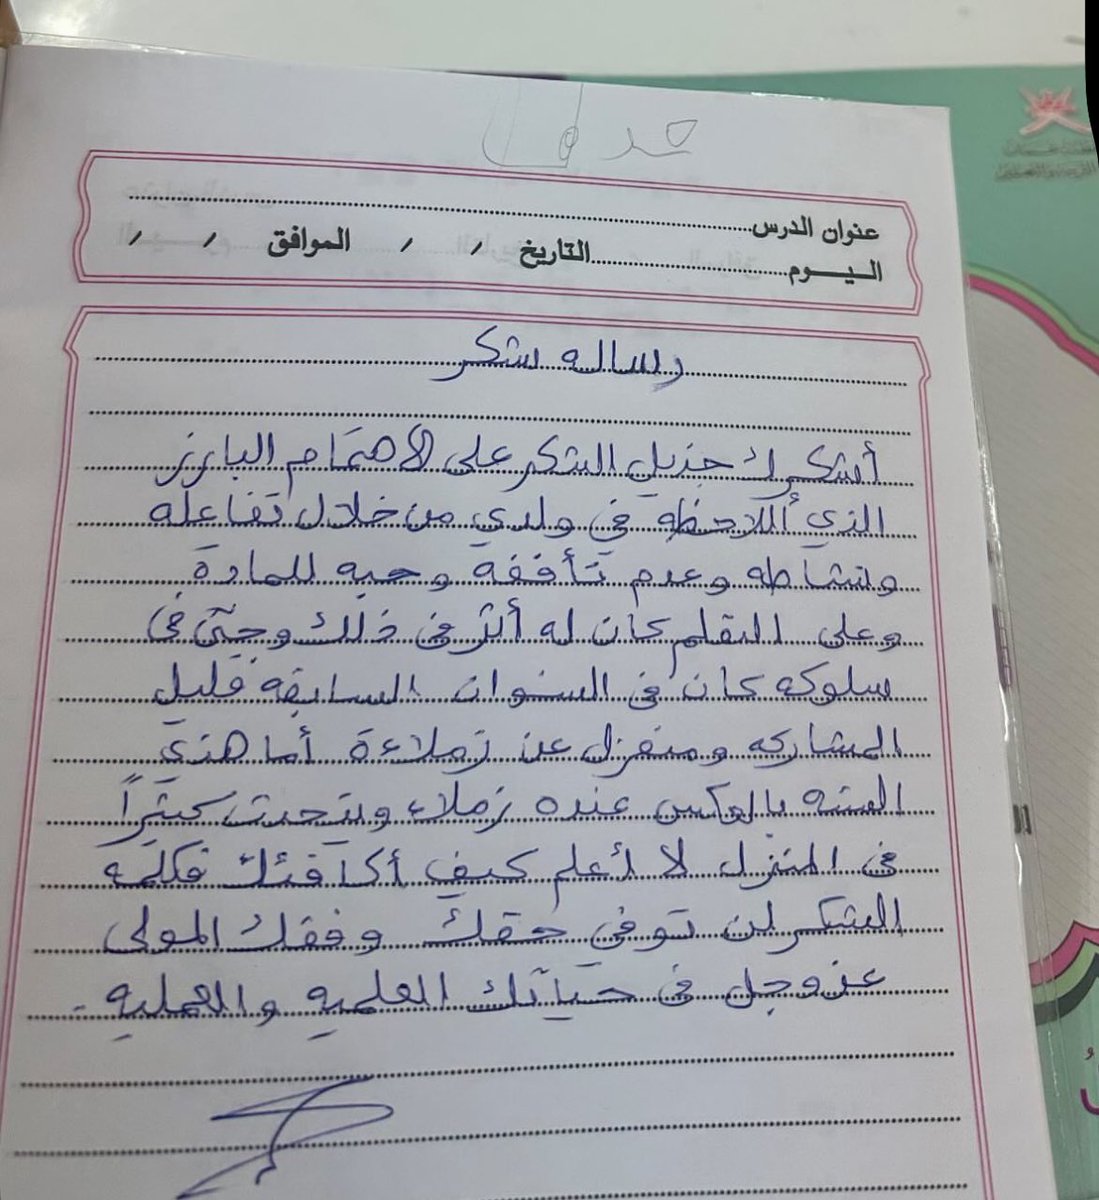 عنوان الدرس
اليوم التاريخ / / الموافق / /
رساله شكر
أشكرك جزيل الشكر على الأهتمام البارز
الذي أللاحظه في ولدي من خلال تفاعله
ونشاطه وعدم تأففة وحبه للمادة
وعلى التعلم كان له أثر في ذلك وحتى في
سلوكه كان في السنوات السابقه قليل
المشاركه ومنعزل عن زملاءة أما هذي
السنه بالعكس عنده زملاء ويتحدث كثيراً
في المنزل لا أعلم كيف أكافئك فكلمه
الشكر لن توفي حقك وفقك المولى
عزوجل في حياتك العلميه والعمليه .